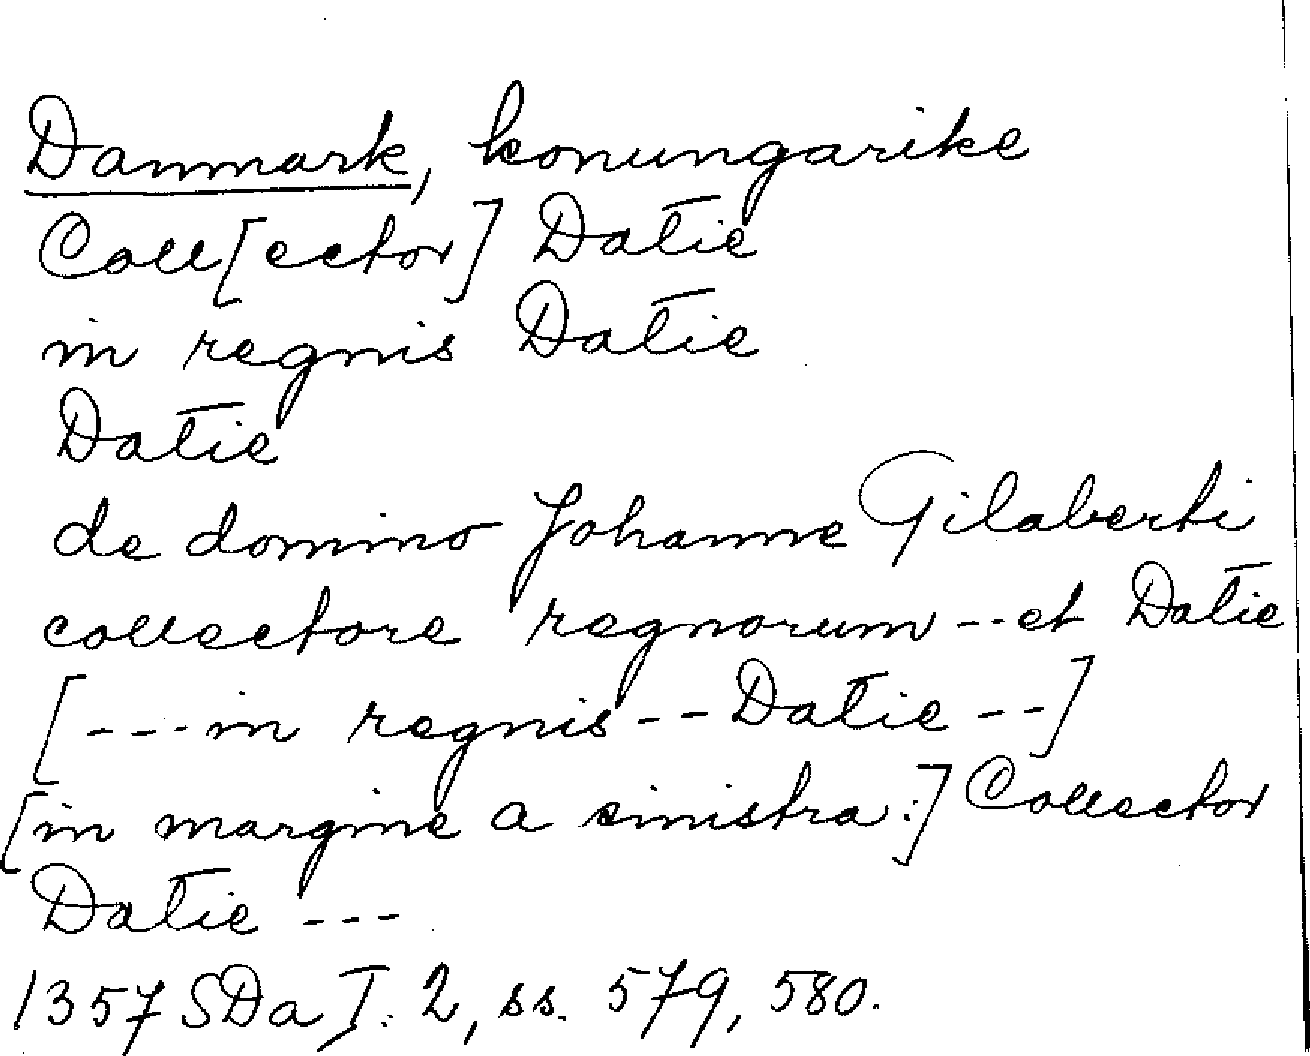 Danmark, konungarike
Coll[ector] Datie
in regnis Datie
Datie
de domino Johanne Gilaberti
collectore regnorum -- et Datie
[--- in regnis -- Datie --]
[in margine a sinistra:] Collector
Datie ---
1357 SDa I: 2, ss. 579, 580.